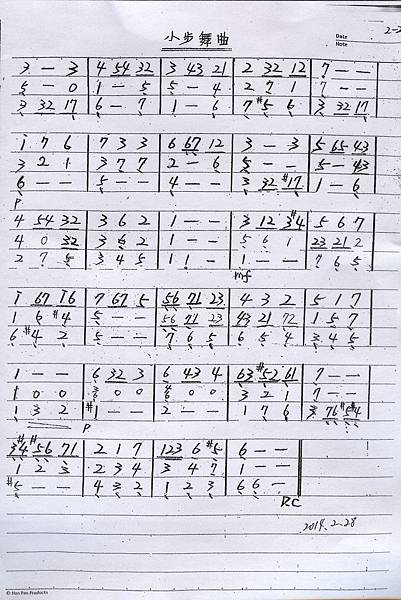 小步舞曲
Date
Note
2-2
3 — 3 | 4 54 32 | 3 43 21 | 2 32 12 | 7 — —
5 — 0 | 1 — 5 | 5 — 4 | 2 7 1 | 7 — —
3 32 17 | 6 — 7 | 1 — 6 | 7 #5 6 | 3 32 17
i 7 6 | 7 3 3 | 6 67 12 | 3 — 3 | 5 65 43
3 2 1 | 3 7 7 | 2 — 6 | 5 — — | 5 — 43
6 — — | 5 — — | 4 — — | 3 32 #17 | 1 — 6
P
4 54 32 | 3 6 2 | 1 — — | 3 12 3#4 | 5 6 7
4 0 32 | 3 6 2 | 1 — — | 5 6 1 | 23 21 2
2 7 5 | 3 4 5 | 1 1 — | 1 — — | 7 6 5
mf
i 67 i6 | 7 67 5 | 56 71 23 | 4 3 2 | 5 1 7
1 6 #4 | 5 — — | 56 71 23 | 43 21 72 | 1 5 7
6 #4 2 | 5 — — | 7 6 5 | 6 5 4 | 3 4 5
1 — — | 6 32 3 | 6 43 4 | 63 #52 61 | 7 — —
1 0 0 | 0 0 | 0 0 | 3 2 1 | 7 — —
1 3 2 | #1 — — | 2 — — | 1 7 6 | 3 76 #5#4
P
3#4 #56 71 | 2 1 7 | 123 6 #5 | 6 — —
1 2 3 | 2 3 4 | 3 4 7 | 1 — —
#5 — — | 4 3 2 | 1 2 3 | 6 6 —
D.C
2014.2.28
© Hon Fen Products